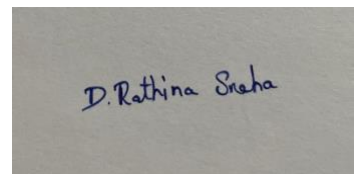 D.Rathina Sneha